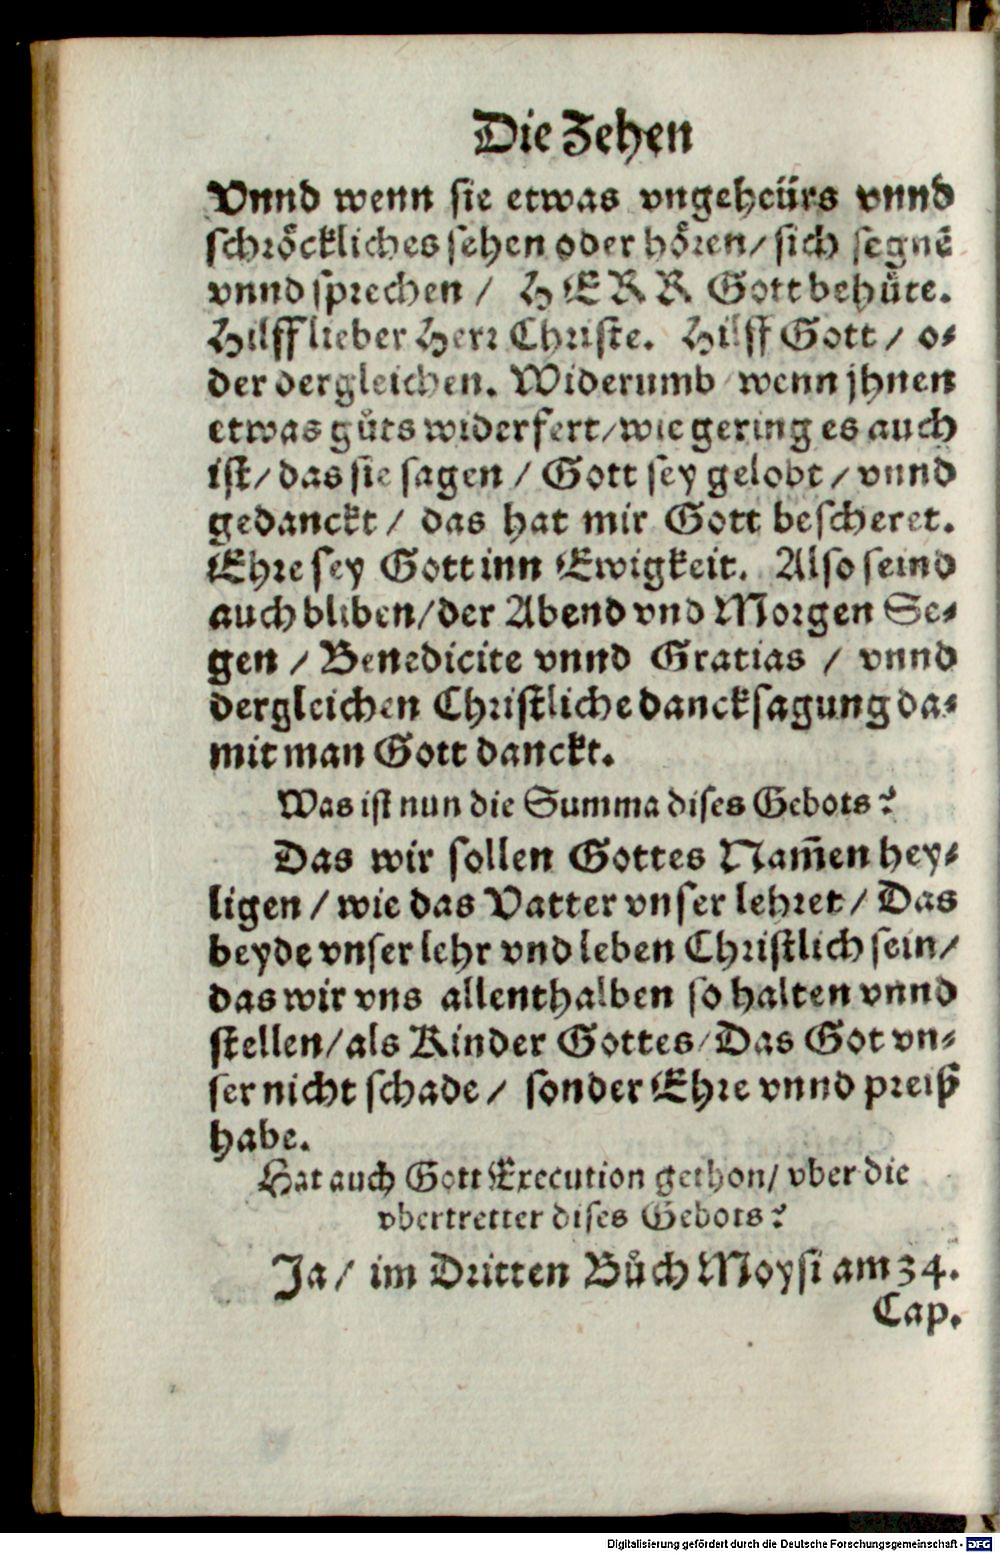 Die Zehen
Vnnd wenn sie etwas vngeheürs vnnd
schröckliches sehen oder hören/ sich segnē
vnnd sprechen / HERR Gott behuͤte.
Hilff lieber Herr Christe. Hilff Gott / o⸗
der dergleichen. Widerumb wenn jhnen
etwas guͤts widerfert/ wie gering es auch
ist/ das sie sagen / Gott sey gelobt / vnnd
gedanckt / das hat mir Gott bescheret.
Ehre sey Gott inn Ewigkeit. Also seind
auch bliben/ der Abend vnd Morgen Se⸗
gen / Benedicite vnnd Gratias / vnnd
dergleichen Christliche dancksagung da⸗
mit man Gott danckt.
Was ist nun die Summa dises Gebots?
Das wir sollen Gottes Nam̄en hey⸗
ligen / wie das Vatter vnser lehret / Das
beyde vnser lehr vnd leben Christlich sein/
das wir vns allenthalben so halten vnnd
stellen/ als Kinder Gottes/ Das Got vn⸗
ser nicht schade / sonder Ehre vnnd preiß
habe.
Hat auch Gott Execution gethon/ vber die
vbertretter dises Gebots?
Ja / im Dritten Buͦch Moysi am 34.
Cap.
Digitalisierung gefördert durch die Deutsche Forschungsgemeinschaft - DFG